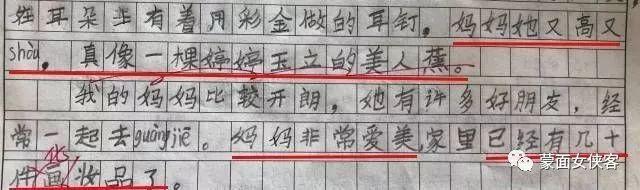 在耳朵上有着用彩金做的耳钉。妈妈她又高又
shòu。真像一棵婷婷玉立的美人蕉。
我的妈妈比较开朗，她有许多好朋友，经
常一起去guàngjiē。妈妈非常爱美，家里已经有几十
件画妆品了。
化
蒙面女侠客